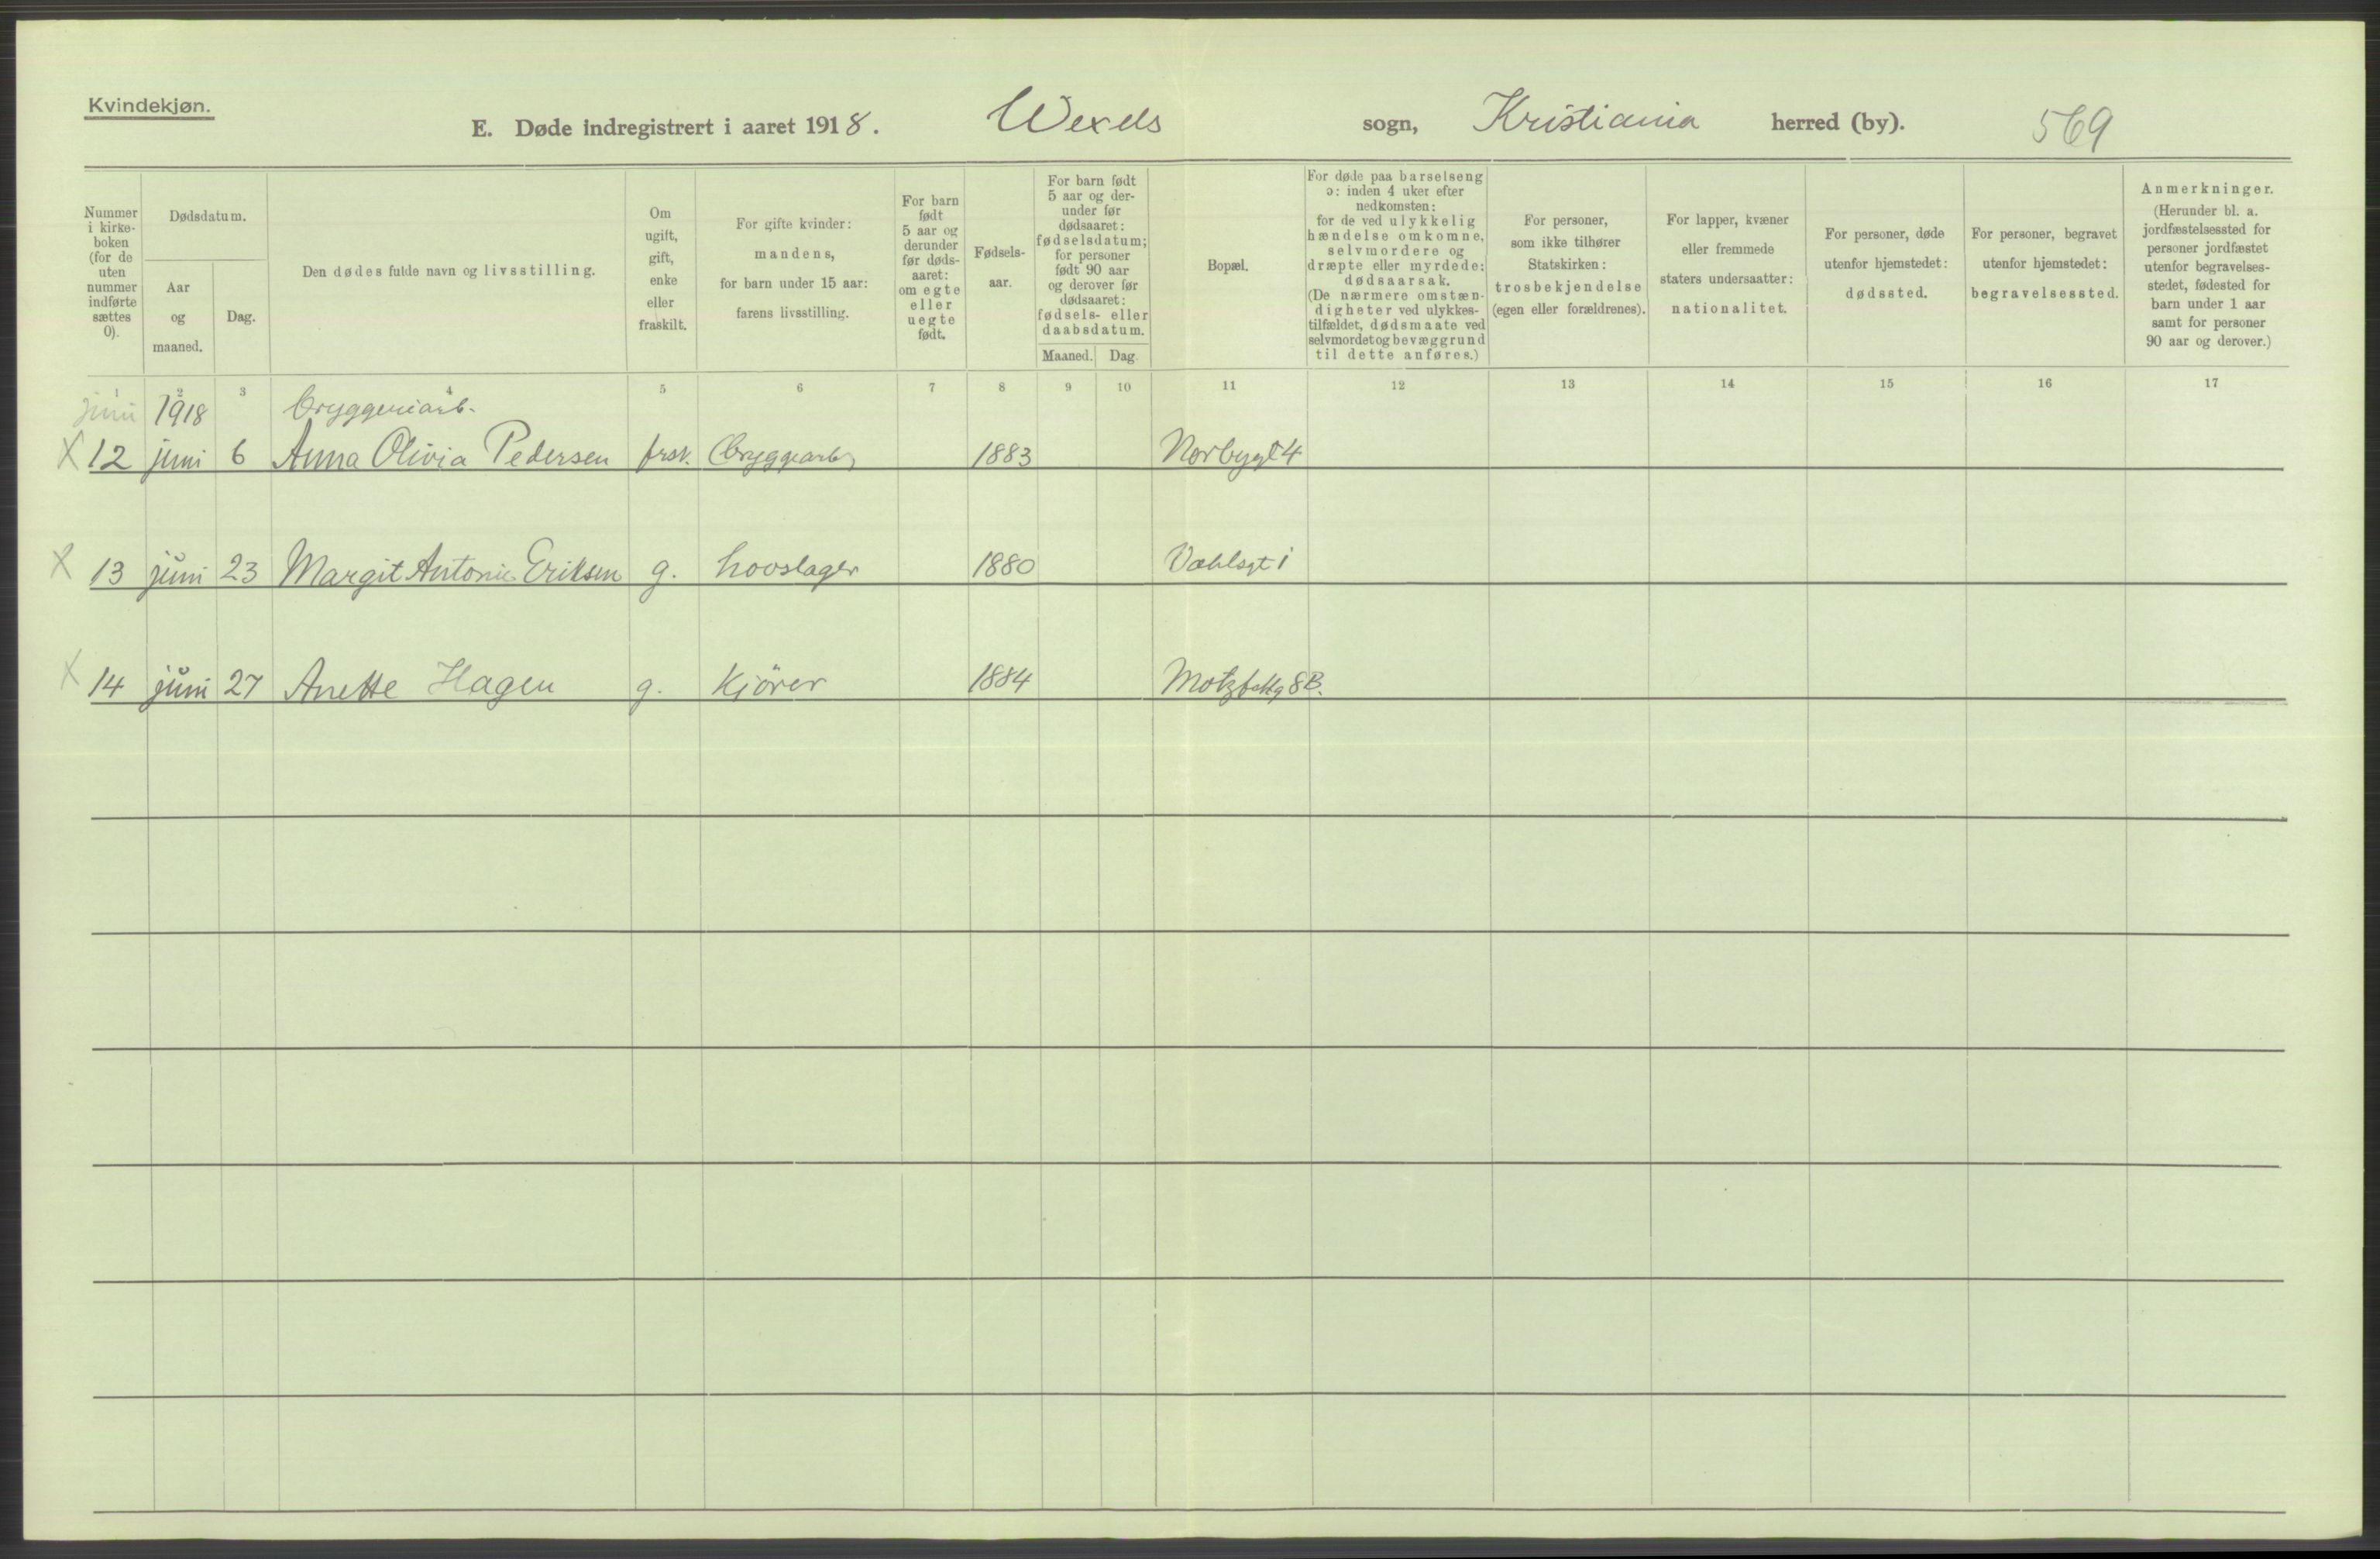 Kvindekjøn.
E. Døde indregistrert i aaret 1918. Wexels sogn, Kristiania herred (by). 569
Nummer
i kirke-
boken
(for de
uten
nummer
indførte
sættes
0).
Dødsdatum.
Aar
og
maaned.
Dag.
Den dødes fulde navn og livsstilling.
Om
ugift,
gift,
enke
eller
fraskilt.
For gifte kvinder:
mandens,
for barn under 15 aar:
farens livsstilling.
For barn
født
5 aar og
derunder
før døds-
aaret:
om egte
eller
uegte
født.
Fødsels-
aar.
For barn født
5 aar og der-
under før
dødsaaret:
fødselsdatum;
for personer
født 90 aar
og derover før
dødsaaret:
fødsels- eller
daabsdatum.
Maaned. Dag
Bopæl.
For døde paa barselseng
ɔ: inden 4 uker efter
nedkomsten:
for de ved ulykkelig
hændelse omkomne,
selvmordere og
dræpte eller myrdede:
dødsaarsak.
(De nærmere omstæn-
digheter ved ulykkes-
tilfældet, dødsmaate ved
selvmordet og bevæggrund
til dette anføres.)
For personer,
som ikke tilhører
Statskirken:
trosbekjendelse
(egen eller forældrenes).
For lapper, kvæner
eller fremmede
staters undersaatter:
nationalitet.
For personer, døde
utenfor hjemstedet:
dødssted.
For personer, begravet
utenfor hjemstedet:
begravelsessted.
Anmerkninger.
(Herunder bl. a.
jordfæstelsessted for
personer jordfæstet
utenfor begravelses-
stedet, fødested for
barn under 1 aar
samt for personer
90 aar og derover.)
1 2 3 4 5 6 7 8 9 10 11 12 13 14 15 16 17
juni 1918 bryggeriarb.
X 12 juni 6 Anna Olivia Pedersen frsk. bryggearb 1883 Norbygt 4
X 13 juni 23 Margit Antonie Eriksen g. hovslager 1880 Vahlsgt 1
X 14 juni 27 Anette Hagen g. Kjörer 1884 Motzfeldtg 8B.